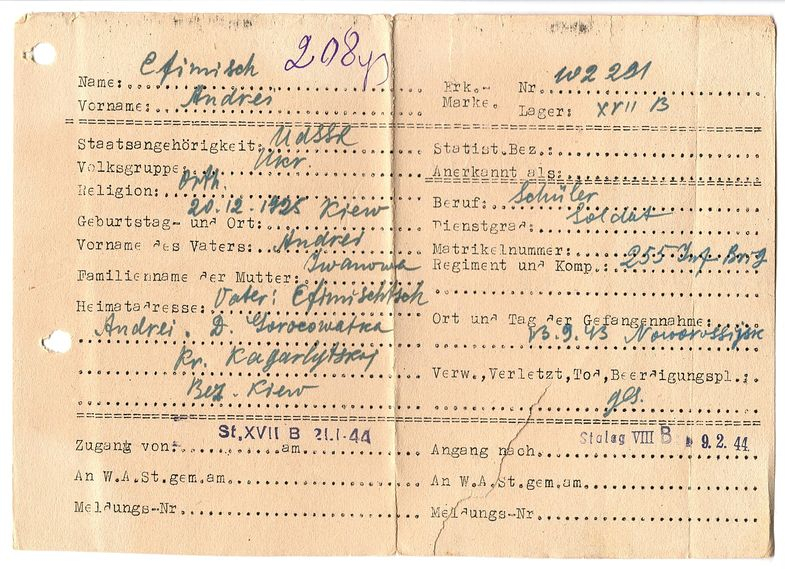 208
Name: Efimisch
Vorname: Andrei
Staatsangehörigkeit: UdSSR
Volksgruppe: Ukr.
Religion: Orth.
Geburtstag- und Ort: 20.12.1925 Kiew
Vorname des Vaters: Andrei
Familienname der Mutter: Iwanowa
Heimatadresse: Vater: Efimischtsch
Andrei. D. Gorocowatka
Kr. Kagarlytskoi
Bez. Kiew
St. XVII B 21.1.44
Zugang von: am
An W.A.St.gem.am
Meldungs-Nr
Erk.- Marke. Nr 102 291
Lager: XVII B
Statist.Bez.:
Anerkannt als:
Beruf: Schüler
Dienstgrad: Soldat
Matrikelnummer:
Regiment und Komp.: 255 Inf. Brig
Ort und Tag der Gefangennahme:
13.9.43 Noworossijsk
Verw.,Verletzt,Tod,Beerdigungspl.:
ges.
Stalag VIII B 9.2.44
Angang nach
An W.A.St.gem.am
Meldungs-Nr